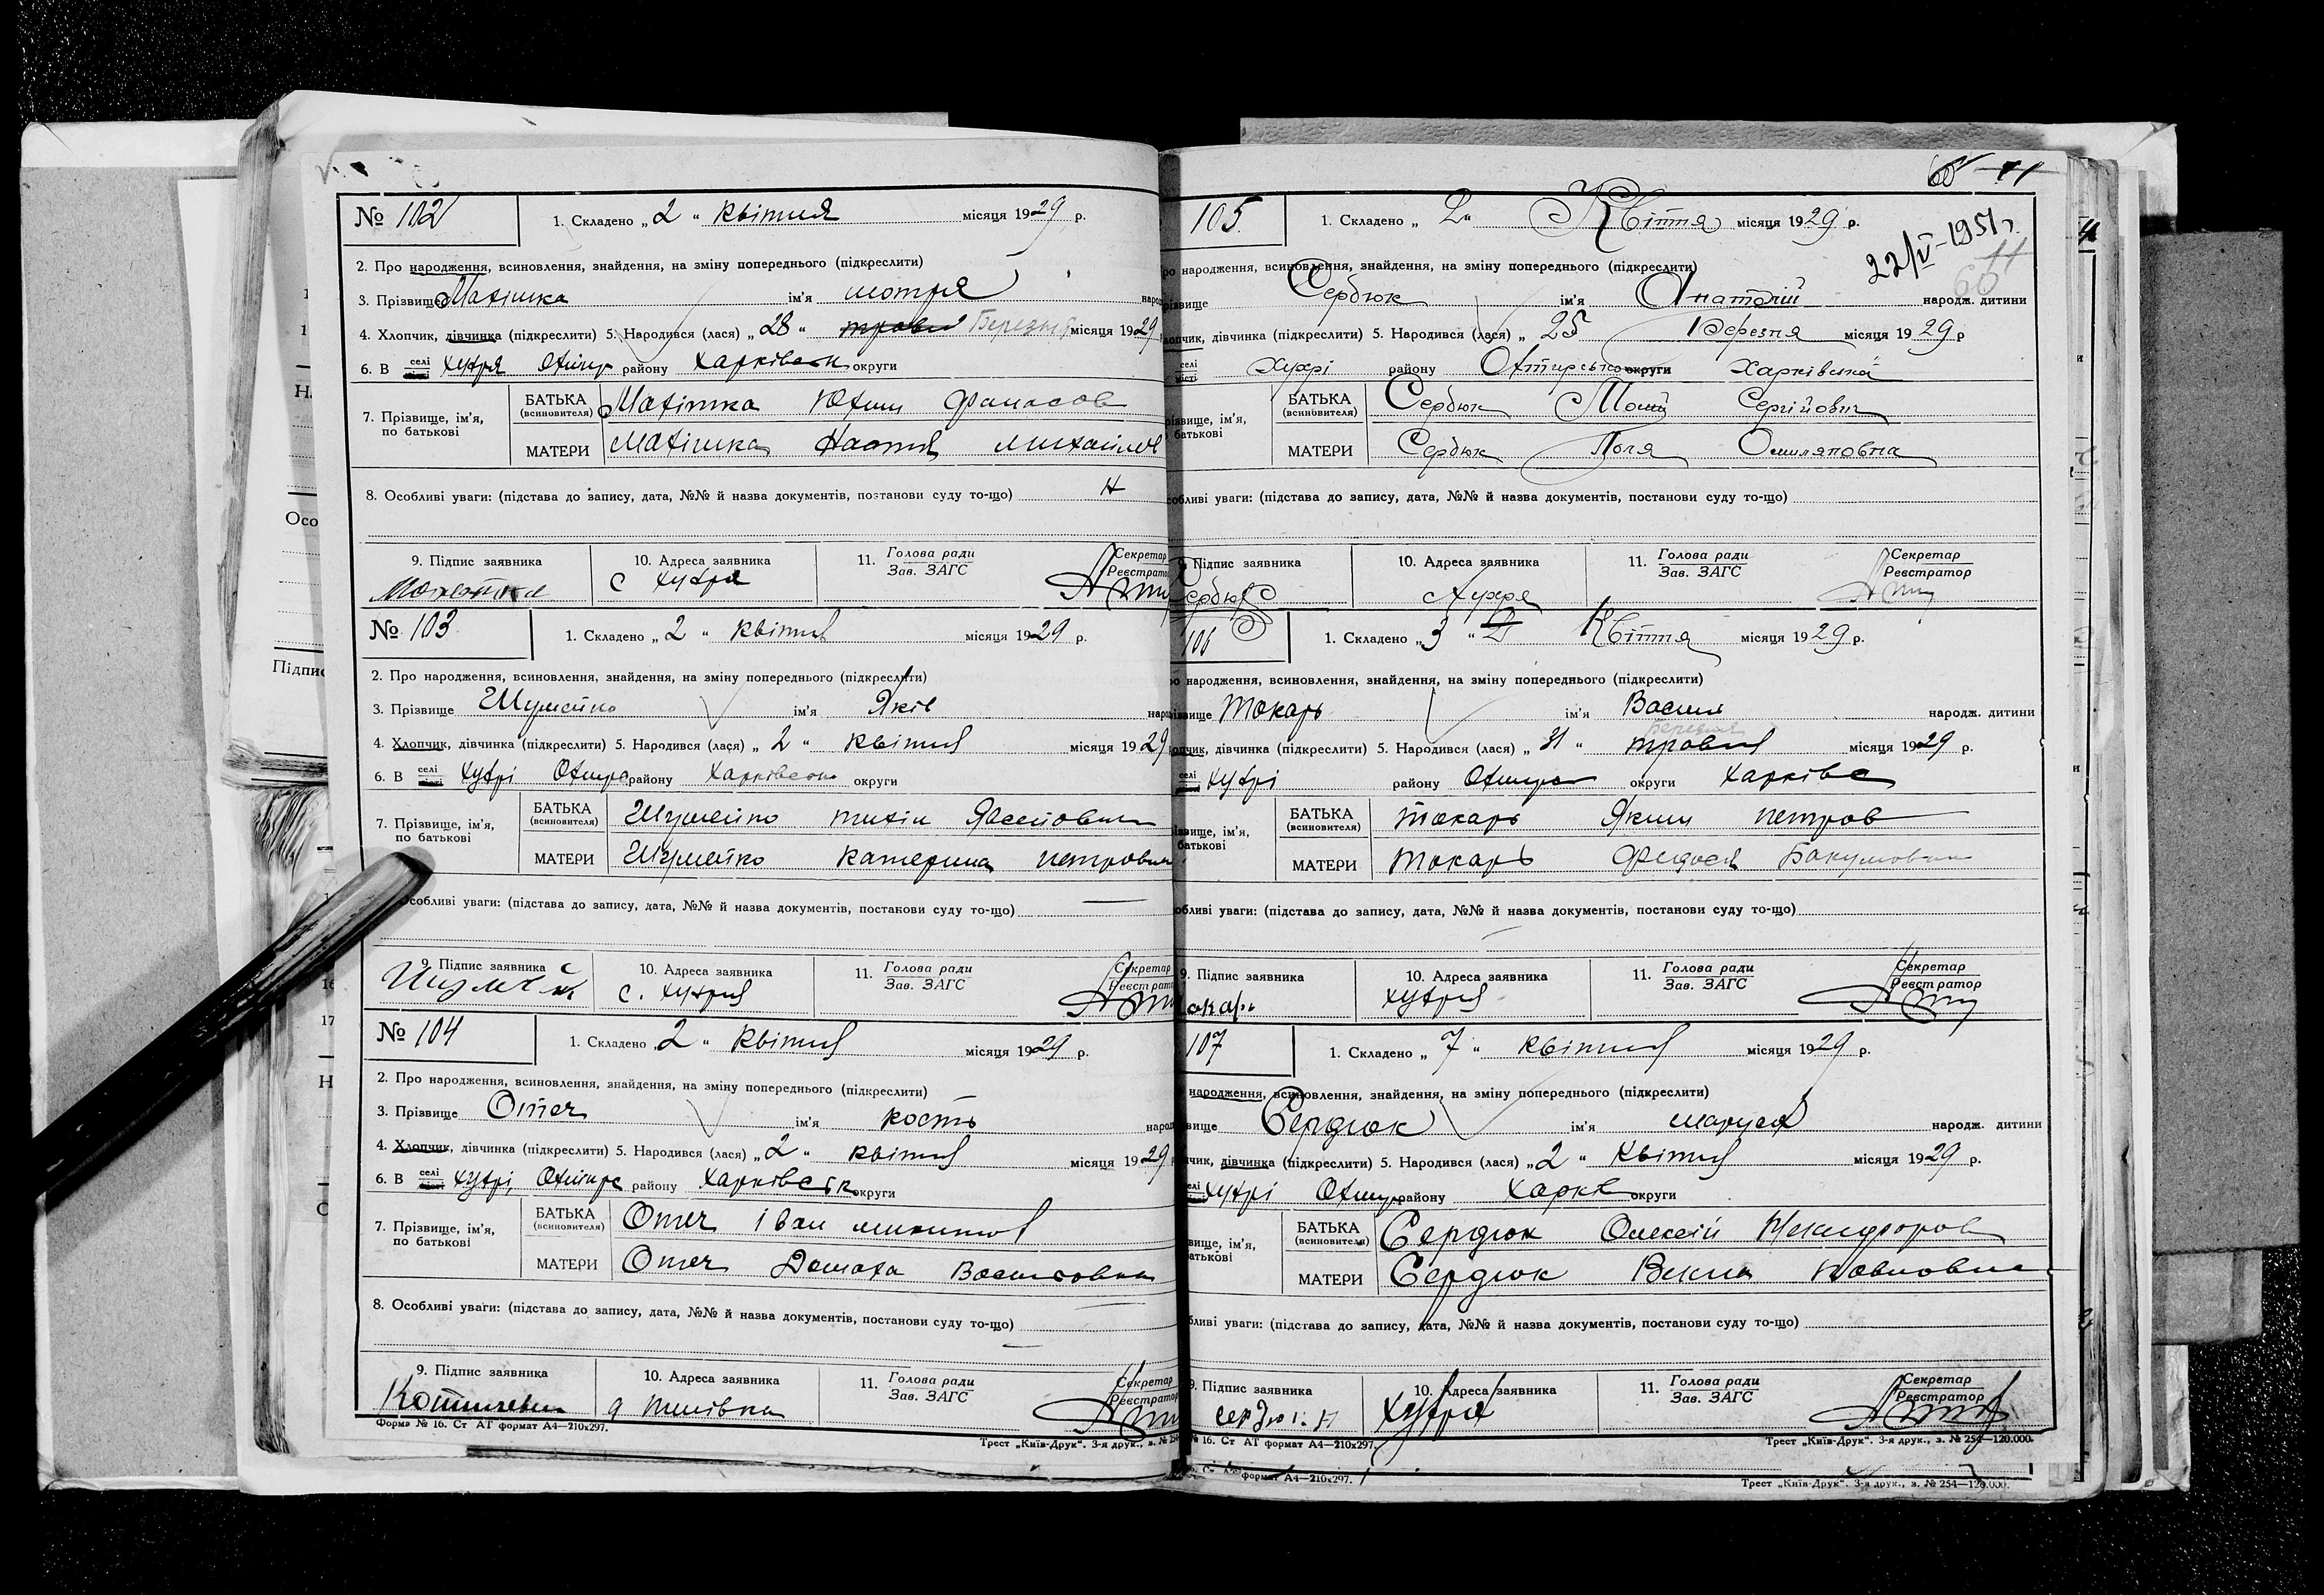 № 102
1. Складено „ 2 “ квітня місяця 1929 р.
2. Про народження, всиновлення, знайдення, на зміну попереднього (підкреслити)
3. Прізвище Матішка ім'я мотря
4. Хлопчик, дівчинка (підкреслити) 5. Народився (лася) „ 28 “ травня Березня місяця 1929
6. В селі Хухря Охтир району Харківськ округи
7. Прізвище, ім'я, по батькові
БАТЬКА (всиновителя) Юхим Фанасов
МАТЕРИ Настя михайлов
8. Особливі уваги: (підстава до запису, дата, №№ й назва документів, постанови суду то-що)
9. Підпис заявника
10. Адреса заявника
11. Голова ради
Зав. ЗАГС
Секретар
Реєстратор
с Хухря
№ 103
1. Складено „ 2 “ квітня місяця 1929 р.
2. Про народження, всиновлення, знайдення, на зміну попереднього (підкреслити)
3. Прізвище Шумейко ім'я Яків
4. Хлопчик, дівчинка (підкреслити) 5. Народився (лася) „ 2 “ квітня місяця 1929
6. В селі Хухрі Охтир району Харківськ округи
7. Прізвище, ім'я, по батькові
БАТЬКА (всиновителя) Шумейко тихін
МАТЕРИ Шумейко катерина петровна
Особливі уваги: (підстава до запису, дата, №№ й назва документів, постанови суду то-що)
9. Підпис заявника
10. Адреса заявника
11. Голова ради
Зав. ЗАГС
Секретар
Реєстратор
с. Хухря
№ 104
1. Складено „ 2 “ квітня місяця 1929 р.
2. Про народження, всиновлення, знайдення, на зміну попереднього (підкреслити)
3. Прізвище Отеч ім'я кость
4. Хлопчик, дівчинка (підкреслити) 5. Народився (лася) „ 2 “ квітня місяця 1929
6. В селі Хухрі, Охтирс району Харківськ округи
7. Прізвище, ім'я, по батькові
БАТЬКА (всиновителя) Отеч іван микитов
МАТЕРИ Отеч Домаха Васильовна
8. Особливі уваги: (підстава до запису, дата, №№ й назва документів, постанови суду то-що)
9. Підпис заявника
10. Адреса заявника
11. Голова ради
Зав. ЗАГС
Секретар
Реєстратор
Форма № 16. Ст АТ формат А4—210х297.
Трест „Київ-Друк“. 3-я друк., з. №
11
22/V-1951 г.
105
1. Складено „ 2 “ Квітня місяця 1929 р.
народження, всиновлення, знайдення, на зміну попереднього (підкреслити)
Сербюк ім'я Анатолій народж. дитини
дівчинка (підкреслити) 5. Народився (лася) „ 25 Березня місяця 1929 р
селі
місті
Хухрі району Охтирсько округи Харківська
БАТЬКА (всиновителя) Сербюк Сергійович
МАТЕРИ Сербюк Поля Омиляновна
уваги: (підстава до запису, дата, №№ й назва документів, постанови суду то-що)
Підпис заявника
10. Адреса заявника
11. Голова ради
Зав. ЗАГС
Секретар
Реєстратор
Сербюк
Хухря
106
1. Складено „ 3 “ Квітня місяця 1929 р.
народження, всиновлення, знайдення, на зміну попереднього (підкреслити)
Токарь ім'я Василь народж. дитини
Березня
дівчинка (підкреслити) 5. Народився (лася) „ 31 “ травня місяця 1929 р.
селі Хухрі району Охтирс округи Харківс
БАТЬКА (всиновителя) токарь Яким петров
МАТЕРИ токарь Федося Бакумовна
уваги: (підстава до запису, дата, №№ й назва документів, постанови суду то-що)
9. Підпис заявника
10. Адреса заявника
11. Голова ради
Зав. ЗАГС
Секретар
Реєстратор
Хухря
107
1. Складено „ 7 “ квітня місяця 1929 р.
народження, всиновлення, знайдення, на зміну попереднього (підкреслити)
Сердюк ім'я маруся народж. дитини
дівчинка (підкреслити) 5. Народився (лася) „ 2 “ Квітня місяця 1929 р.
Хухрі Охтир району Харків округи
БАТЬКА (всиновителя) Сердюк Олексій Никифоров
МАТЕРИ Сердюк Векла Павловна
уваги: (підстава до запису, дата, №№ й назва документів, постанови суду то-що)
9. Підпис заявника
10. Адреса заявника
11. Голова ради
Зав. ЗАГС
Секретар
Реєстратор
Хухря
№ 16. Ст АТ формат А4—210х297.
Трест „Київ-Друк“. 3-я друк., з. № 254—120.000.
формат А4—210х297.
Трест „Київ-Друк“. 3-я друк., з. № 254—120.000.